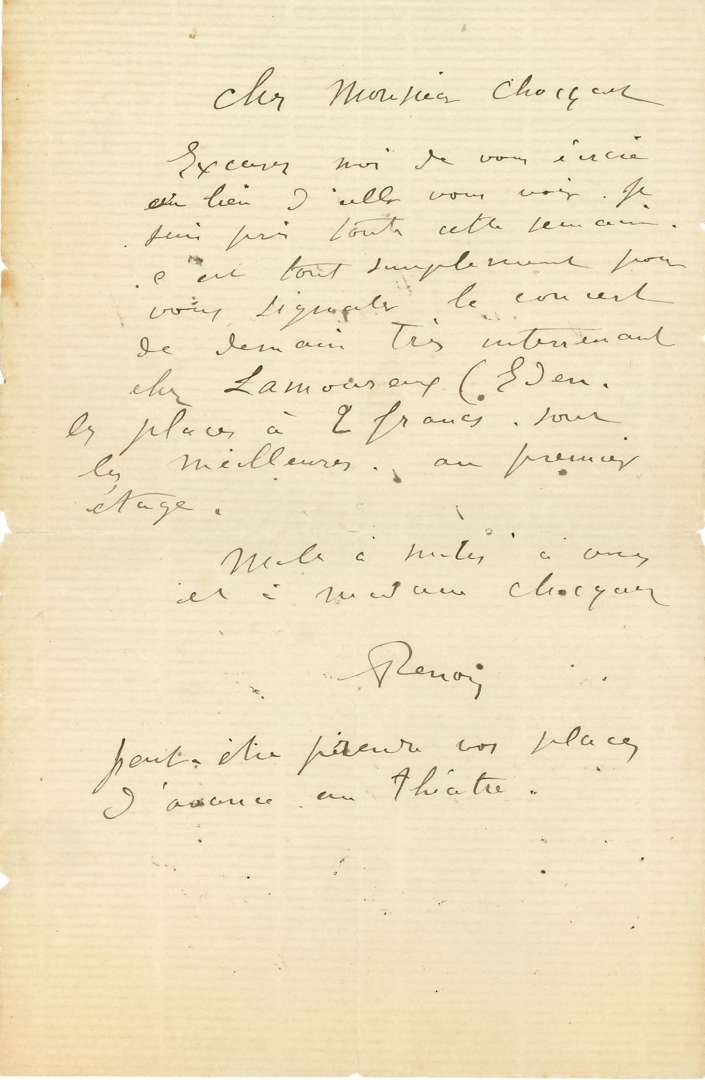 Cher Monsieur Chocquet
Excusez moi de vous écrire
au lieu d'aller vous voir. Je
suis pris toute cette semaine.
c'est tout simplement pour
vous signaler le concert
de demain très interressant
chez Lamoureux (Eden.
les places à 2 francs. sont
les meilleures. au premier
étage.
Mille amitiés à vous
et à madame Chocquet
Renoir
peut-être prendre vos places
d'avance au théâtre.